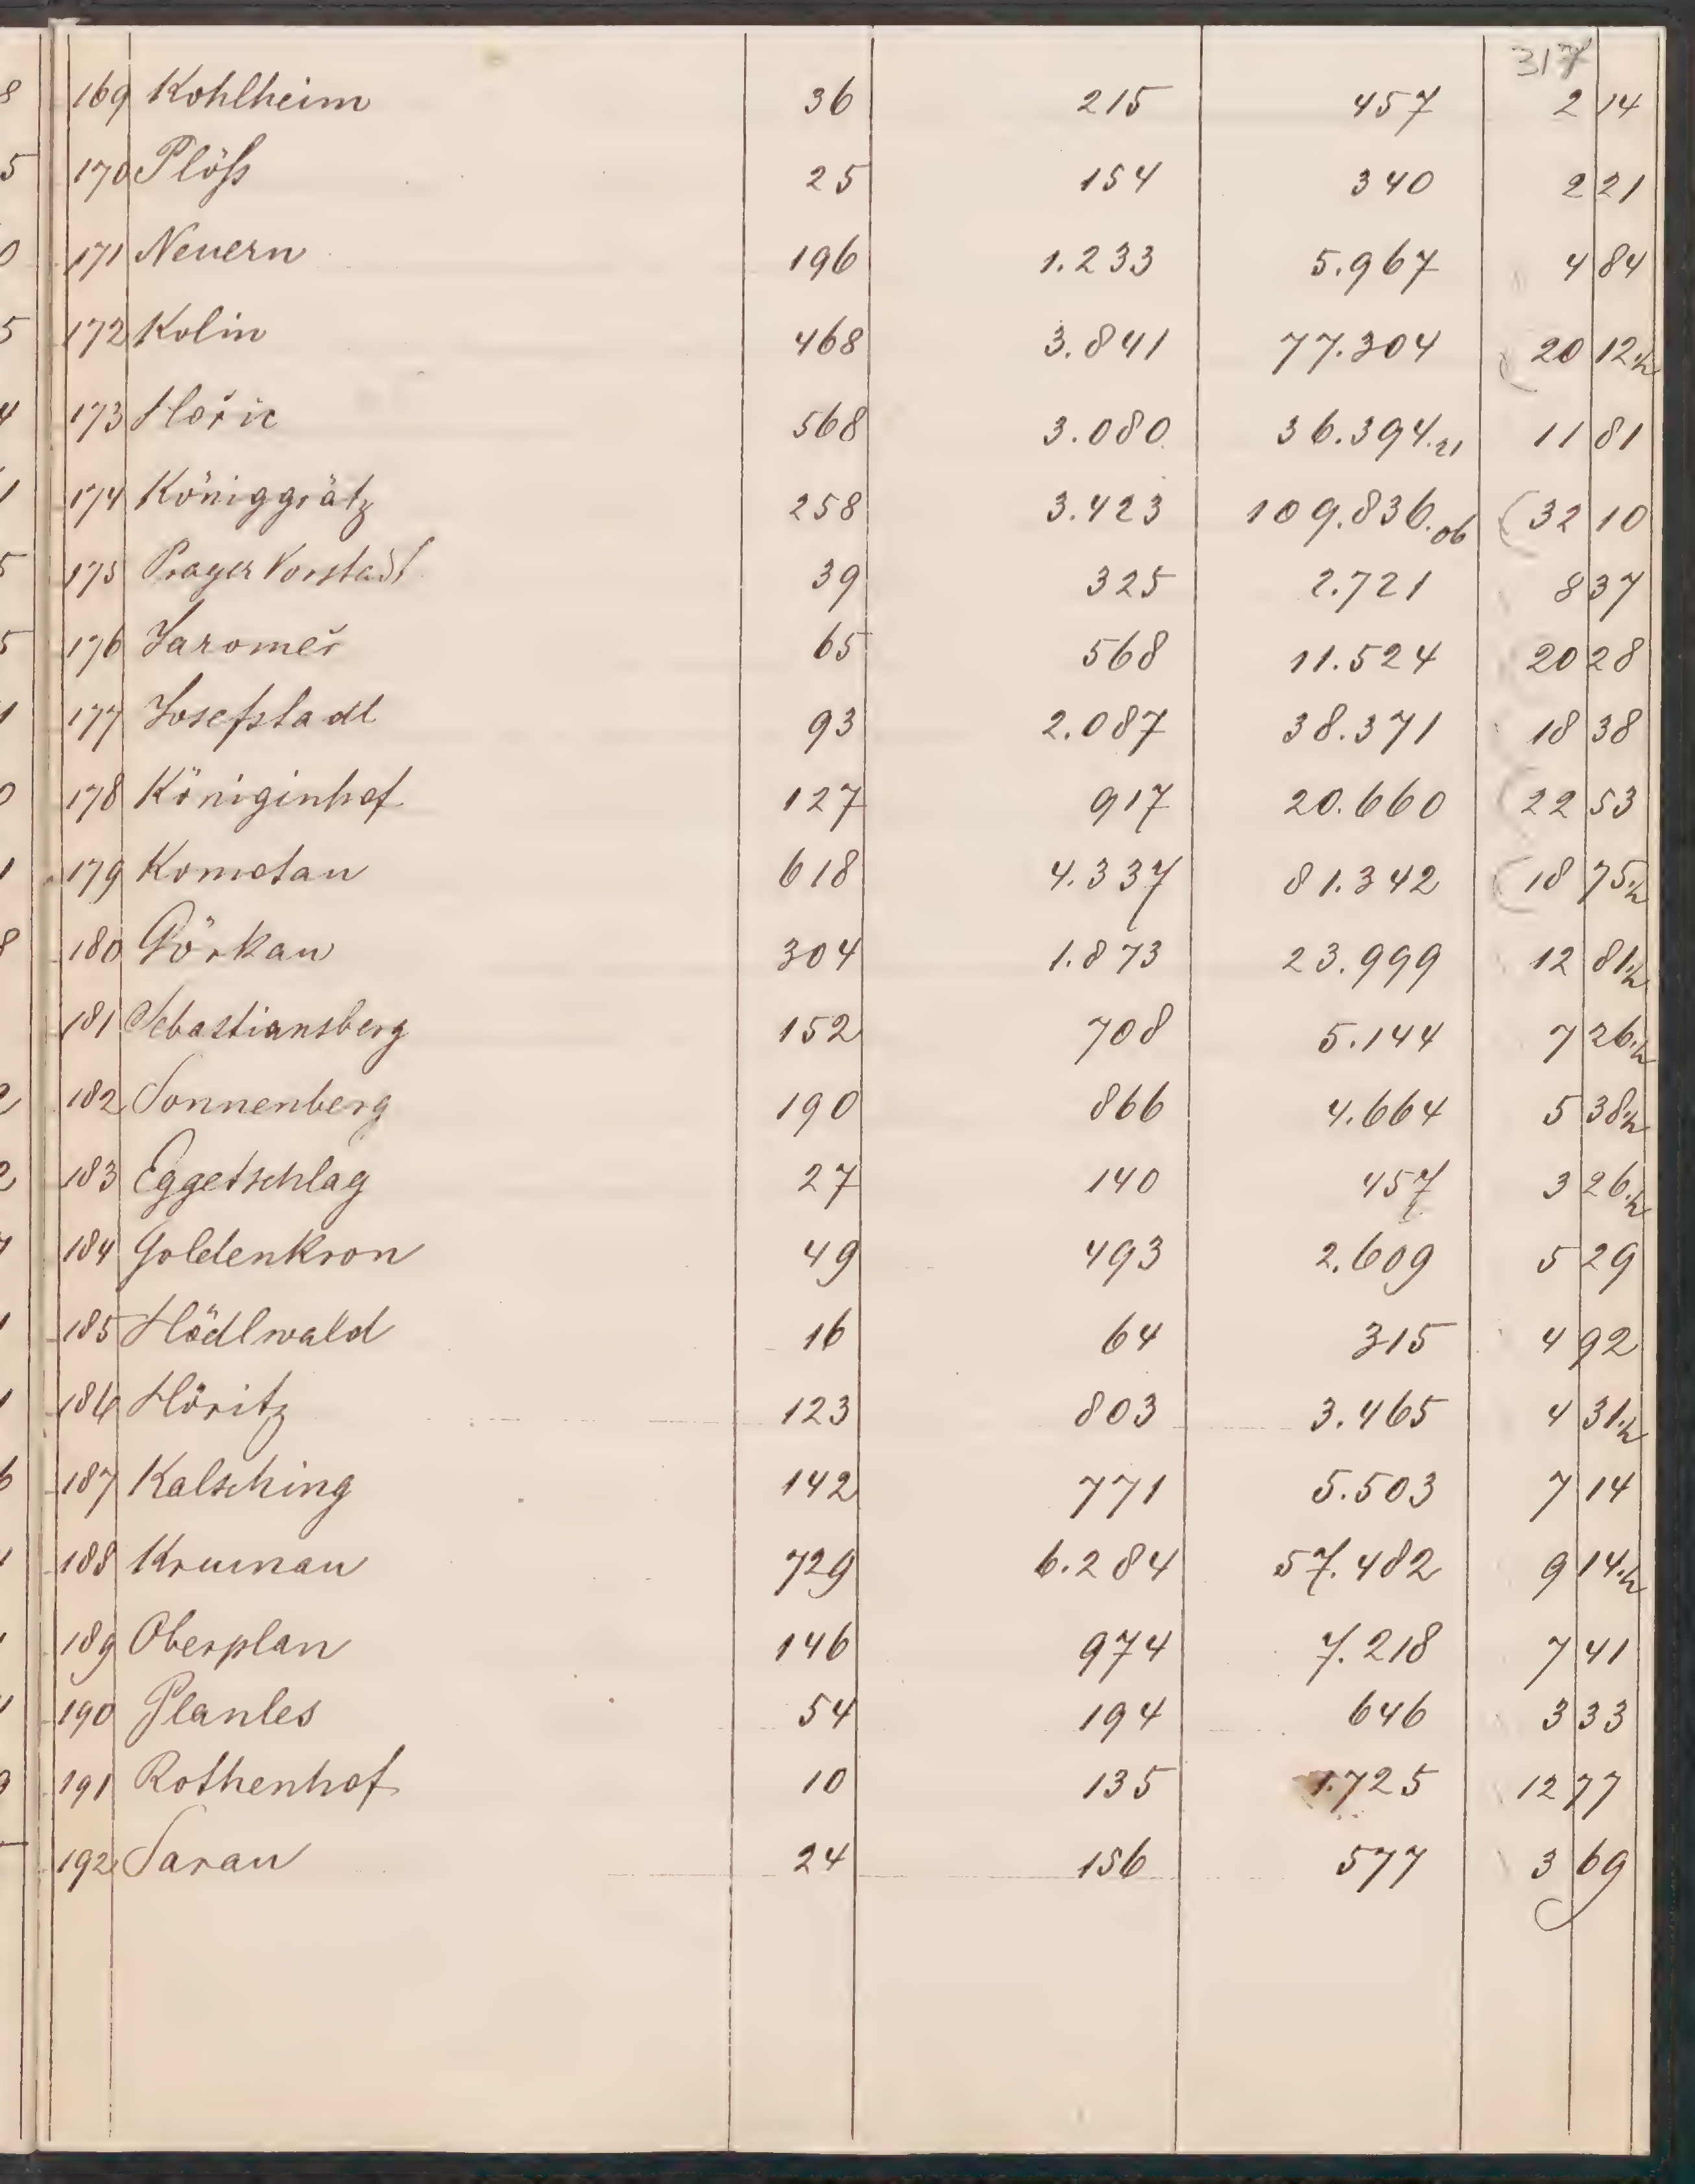 317
169 Kohlheim 36 215 457 2 14
170 Plöß 25 154 340 2 21
171 Neuern 196 1.233 5.967 4 84
172 Kolin 468 3.841 77.304 20 12.½
173 Hořic 568 3.080 36.394.21 11 81
174 Königgrätz 258 3.423 109.836.06 32 10
175 Prager Vorstadt 39 325 2.721 8 37
176 Jaromeř 65 568 11.524 20 28
177 Josefstadt 93 2.087 38.371 18 38
178 Königinhof 127 917 20.660 22 53
179 Komotau 618 4.337 81.342 18 75.½
180 Görkau 304 1.873 23.999 12 81.½
181 Sebastiansberg 152 708 5.144 7 26.½
182 Sonnenberg 190 866 4.664 5 38.½
183 Eggetschlag 27 140 457 3 26.½
184 Goldenkron 49 493 2.609 5 29
185 Hödlwald 16 64 315 4 92
186 Höritz 123 803 3.465 4 31.½
187 Kalsching 142 771 5.503 7 14
188 Krumau 729 6.284 57.482 9 14.½
189 Oberplan 146 974 7.218 7 41
190 Planles 54 194 646 3 33
191 Rothenhof 10 135 1.725 12 77
192 Sarau 24 156 577 3 69